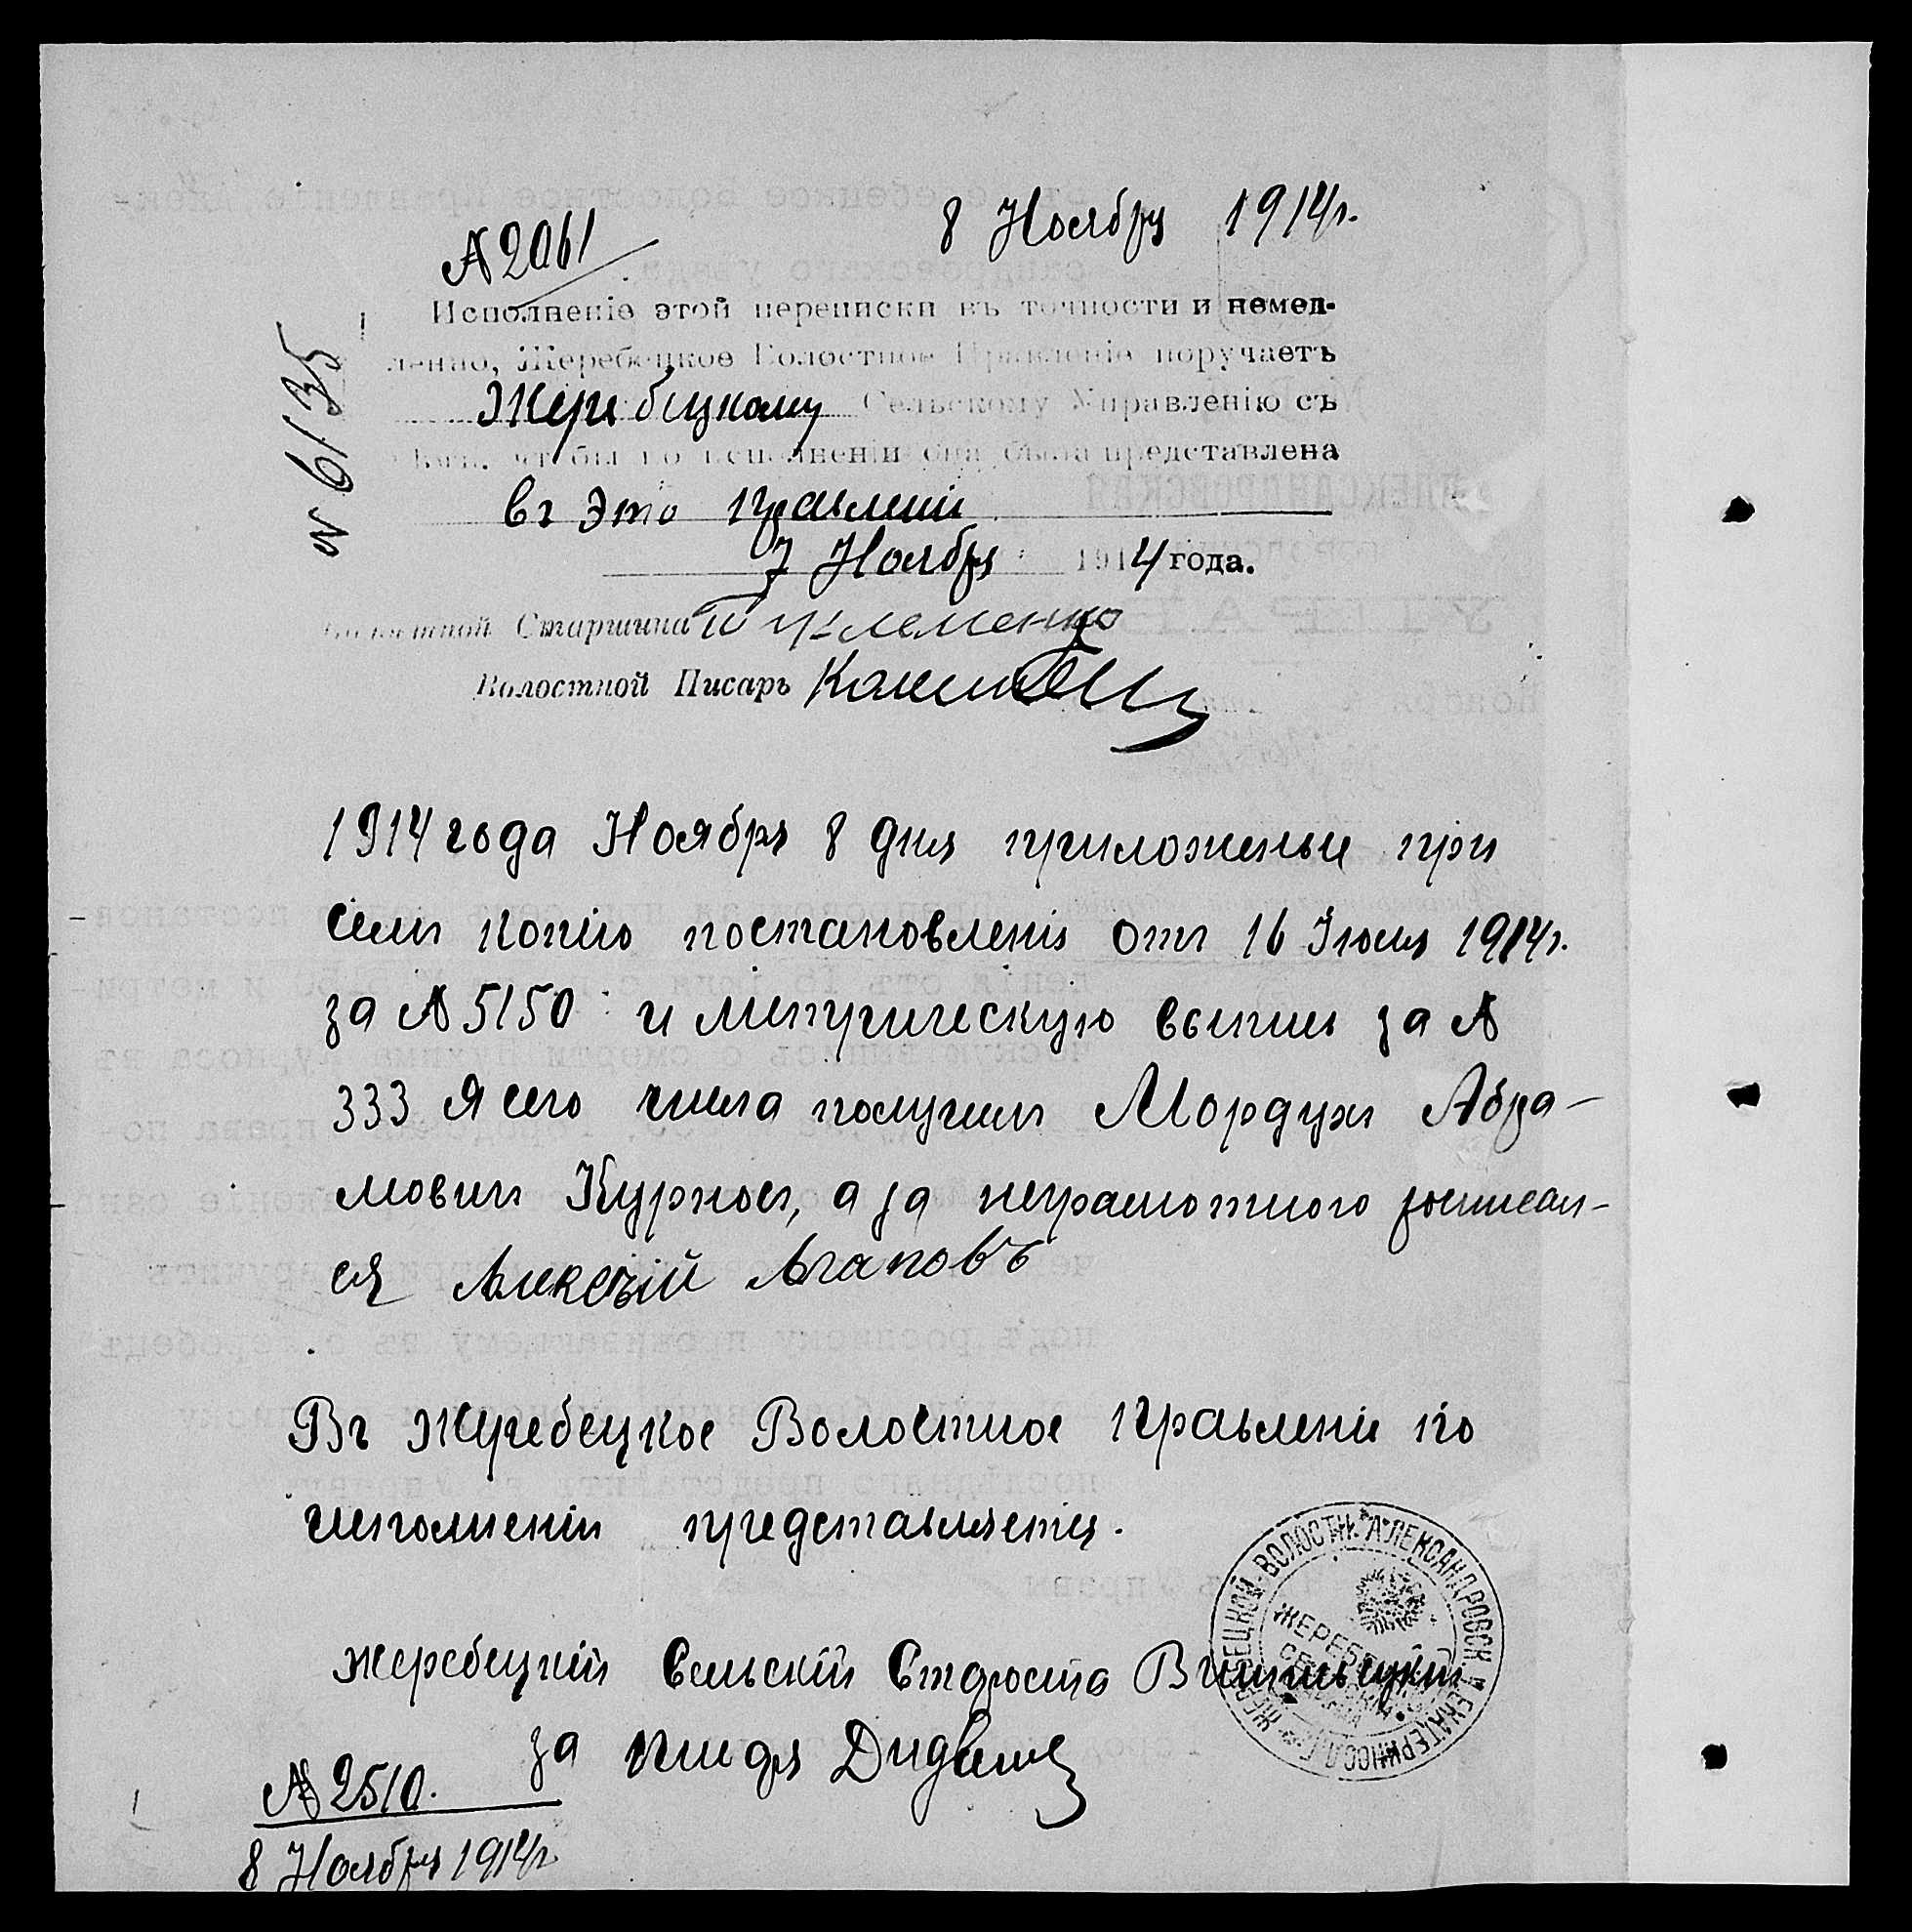 8 Ноября 1914 г.
№ 2061
№ 6135
Исполненіе этой переписки въ точности и немед-
ленно, Жеребецкое Волостное Правленіе поручаетъ
Жеребецкому Сельскому Управленію съ
чтобы по исполненіи она была представлена
въ это правленіе
7 Ноября 1914 года.
Волостной Старшина
Волостной Писарь
1914 года Ноября 8 дня приложенные при
семъ копію постановленія отъ 16 Іюля 1914 г.
за № 5150 и метрическую выпись за №
333 я сего числа получилъ Мордухъ Абра-
мовичъ Курносъ, а за неграмотного росписал-
ся Алексѣй Агаповъ
Въ Жеребецкое Волостное Правленіе по
исполненіи представляется.
Жеребецкій Сельскій Староста
за писаря
№ 2510.
8 Ноября 1914 г.
ЖЕРЕБЕЦКОЙ ВОЛОСТИ АЛЕКСАНДРОВСК. У. ЕКАТЕРИНОСЛ. Г.